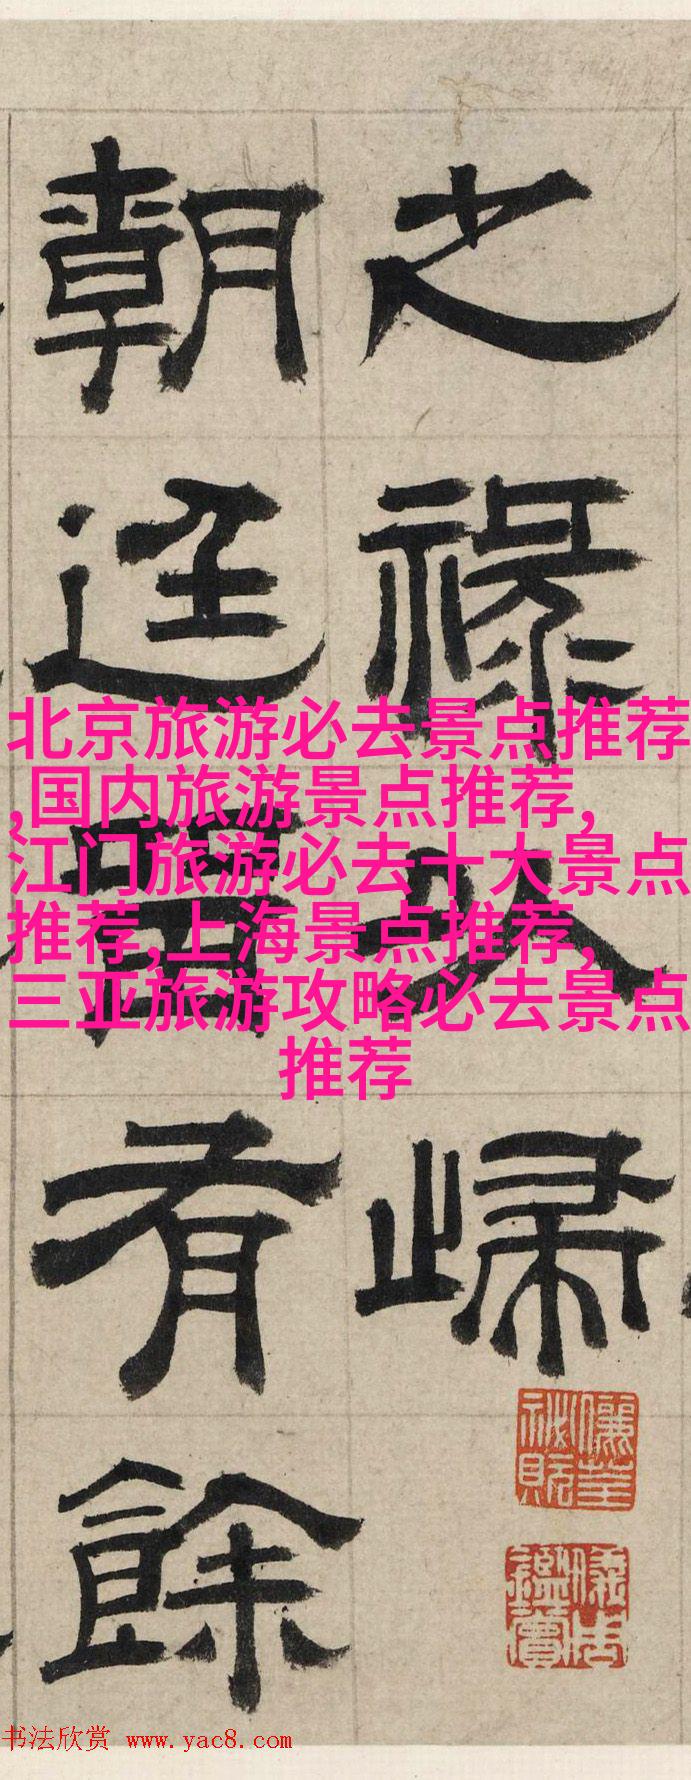 之祿以歸
朝廷有餘
北京旅游必去景点推荐
,国内旅游景点推荐,
江门旅游必去十大景点
推荐,上海景点推荐,
三亚旅游攻略必去景点
推荐
书法欣赏 www.yac8.com